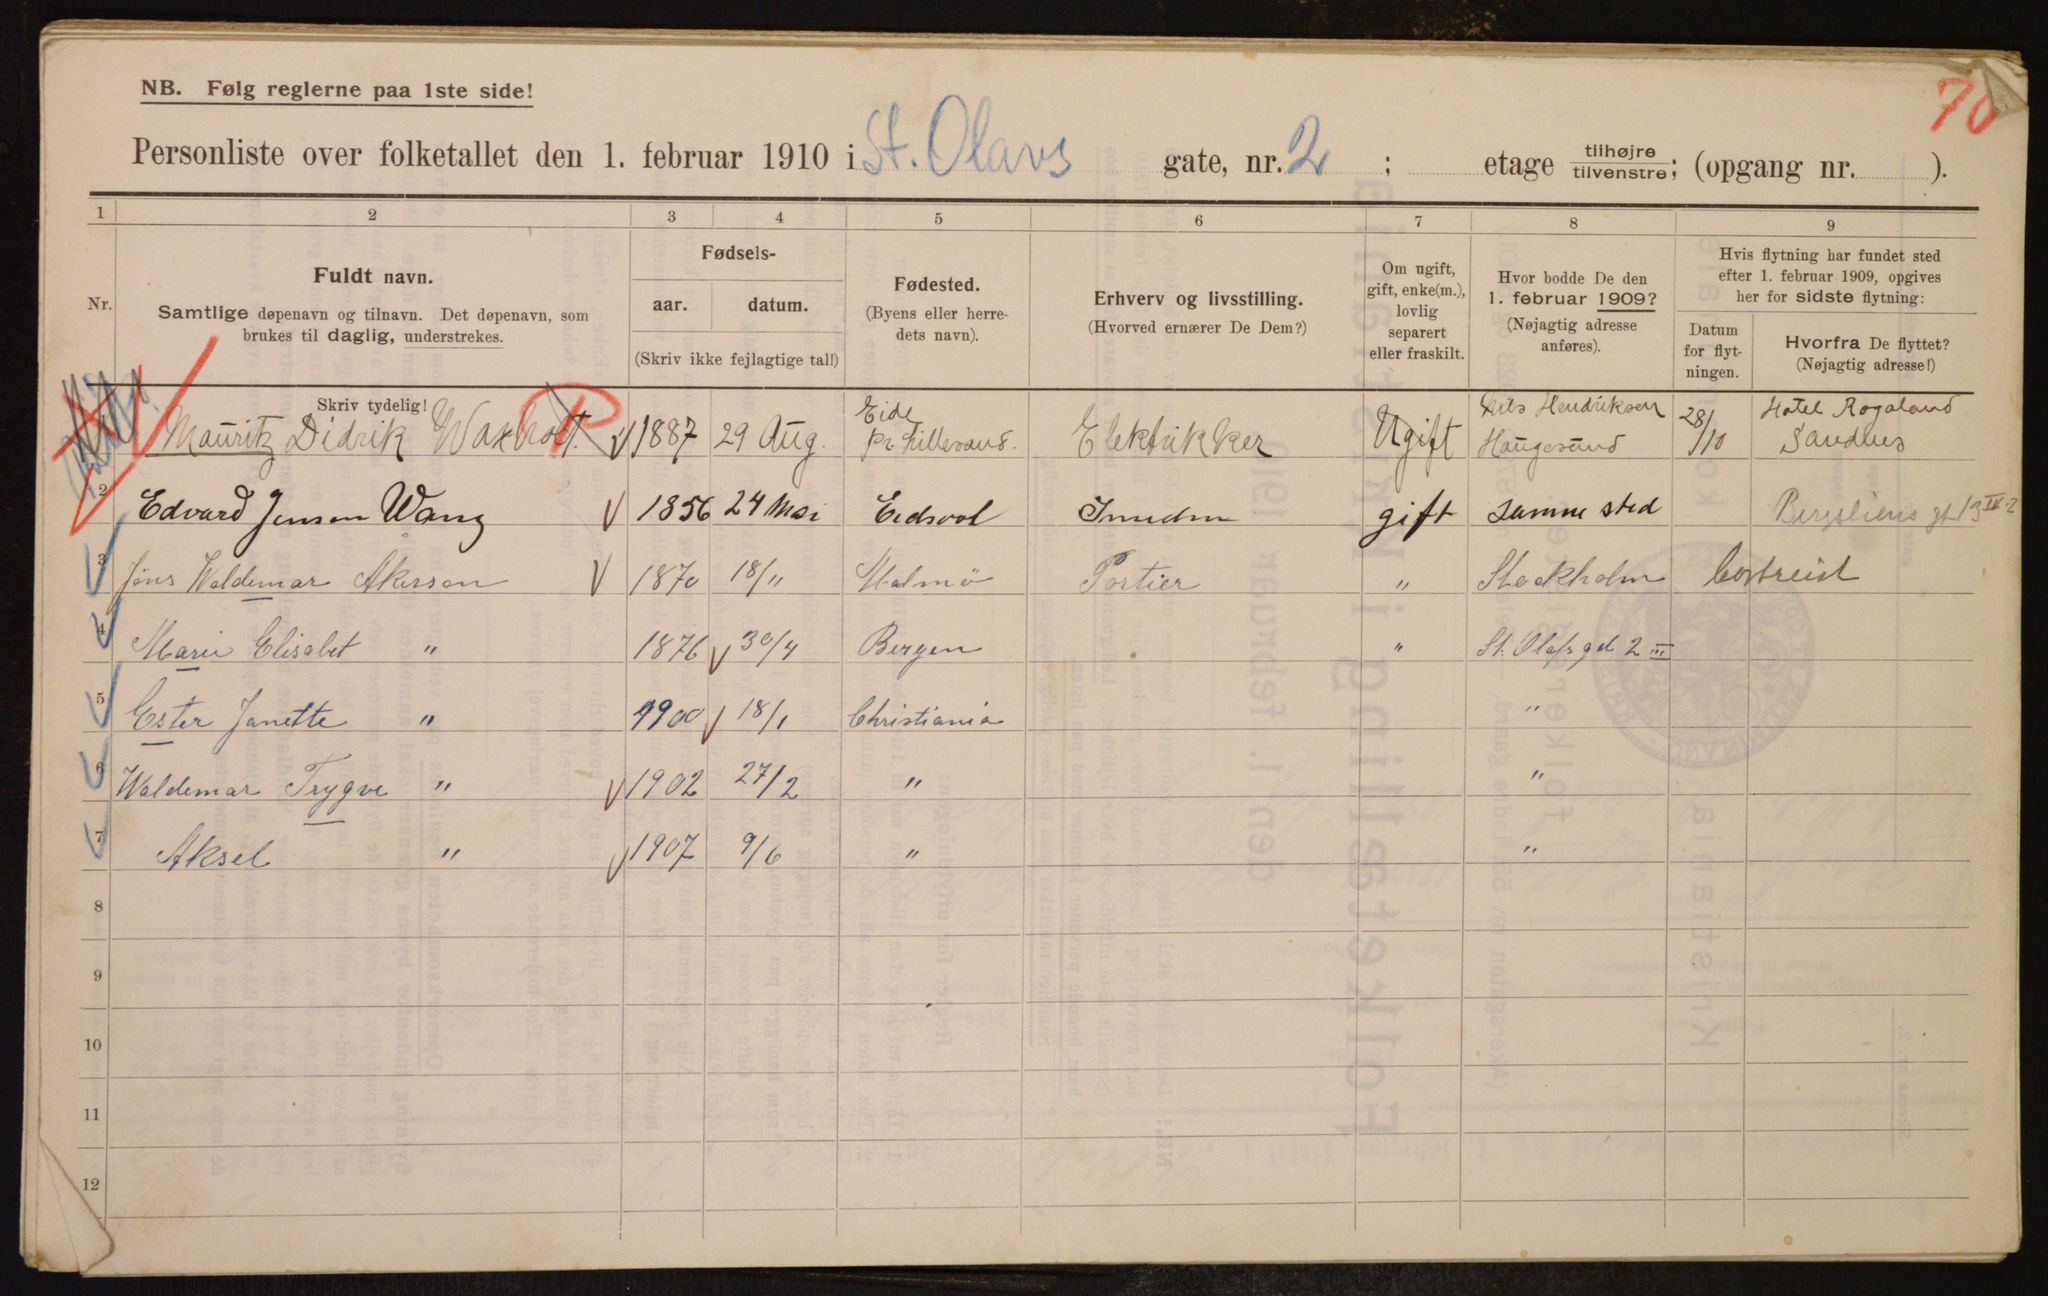 70
NB. Følg reglerne paa 1ste side!
Personliste over folketallet den 1. februar 1910 i St. Olavs gate, nr. 2 ; etage tilhøjre tilvenstre; (opgang nr. ).
1 2 3 4 5 6 7 8 9
Nr.
Fuldt navn.
Samtlige døpenavn og tilnavn. Det døpenavn, som
brukes til daglig, understrekes.
Skriv tydelig!
Fødsels-
aar. datum.
(Skriv ikke fejlagtige tal!)
Fødested.
(Byens eller herre-
dets navn).
Erhverv og livsstilling.
(Hvorved ernærer De Dem?)
Om ugift,
gift, enke(m.),
lovlig
separert
eller fraskilt.
Hvor bodde De den
1. februar 1909?
(Nøjagtig adresse
anføres).
Hvis flytning har fundet sted
efter 1. februar 1909, opgives
her for sidste flytning:
Datum
for flyt-
ningen.
Hvorfra De flyttet?
(Nøjagtig adresse!)
1 Mauritz Didrik 1887 29 Aug. Eide pr. Lillesand. Elektrikker Ugift Nils Hendriksen Haugesund 28/10 Hotel Rogaland Sandnes
2 Edvard Jensen Wang 1856 24 Mai Eidsvol gift samme sted Bergsliens gt 13 IV
3 Jöns Waldemar Åkesson 1870 18/11 Malmö Portier " Stockholm bortreist
4 Marie Elisabet " 1876 30/4 Bergen " St. Olafs gd 2 III
5 Ester Janette " 1900 18/1 Christiania "
6 Waldemar Trygve " 1902 27/2 " "
7 Aksel " 1907 9/6 " "
8
9
10
11
12